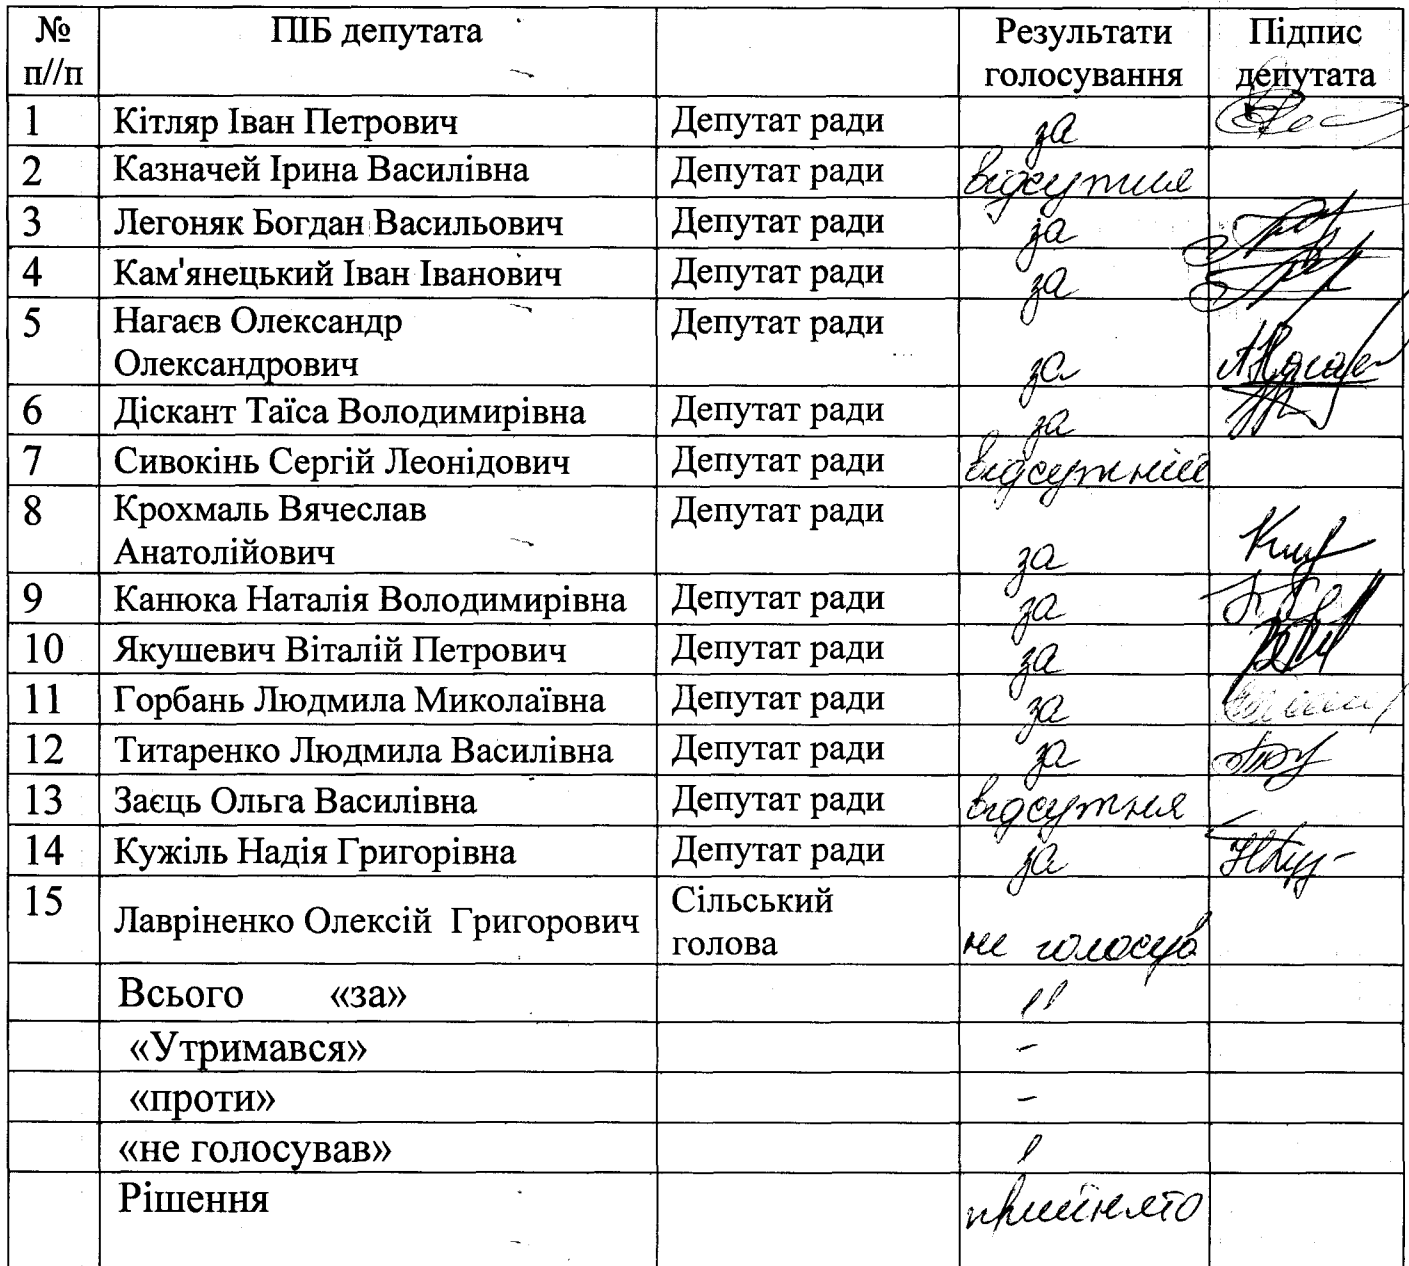 № п//п ПІБ депутата Результати голосування Підпис депутата
1 Кітляр Іван Петрович Депутат ради за
2 Казначей Ірина Василівна Депутат ради відсутня
3 Легоняк Богдан Васильович Депутат ради за
4 Кам'янецький Іван Іванович Депутат ради за
5 Нагаєв Олександр Депутат ради
Олександрович за
6 Діскант Таїса Володимирівна Депутат ради за
7 Сивокінь Сергій Леонідович Депутат ради відсутній
8 Крохмаль Вячеслав Депутат ради
Анатолійович за
9 Канюка Наталія Володимирівна Депутат ради за
10 Якушевич Віталій Петрович Депутат ради за
11 Горбань Людмила Миколаївна Депутат ради за
12 Титаренко Людмила Василівна Депутат ради за
13 Заєць Ольга Василівна Депутат ради відсутня
14 Кужіль Надія Григорівна Депутат ради за
15 Лавріненко Олексій Григорович Сільський голова не голосував
Всього «за» 11
«Утримався» -
«проти» -
«не голосував» 1
Рішення прийнято